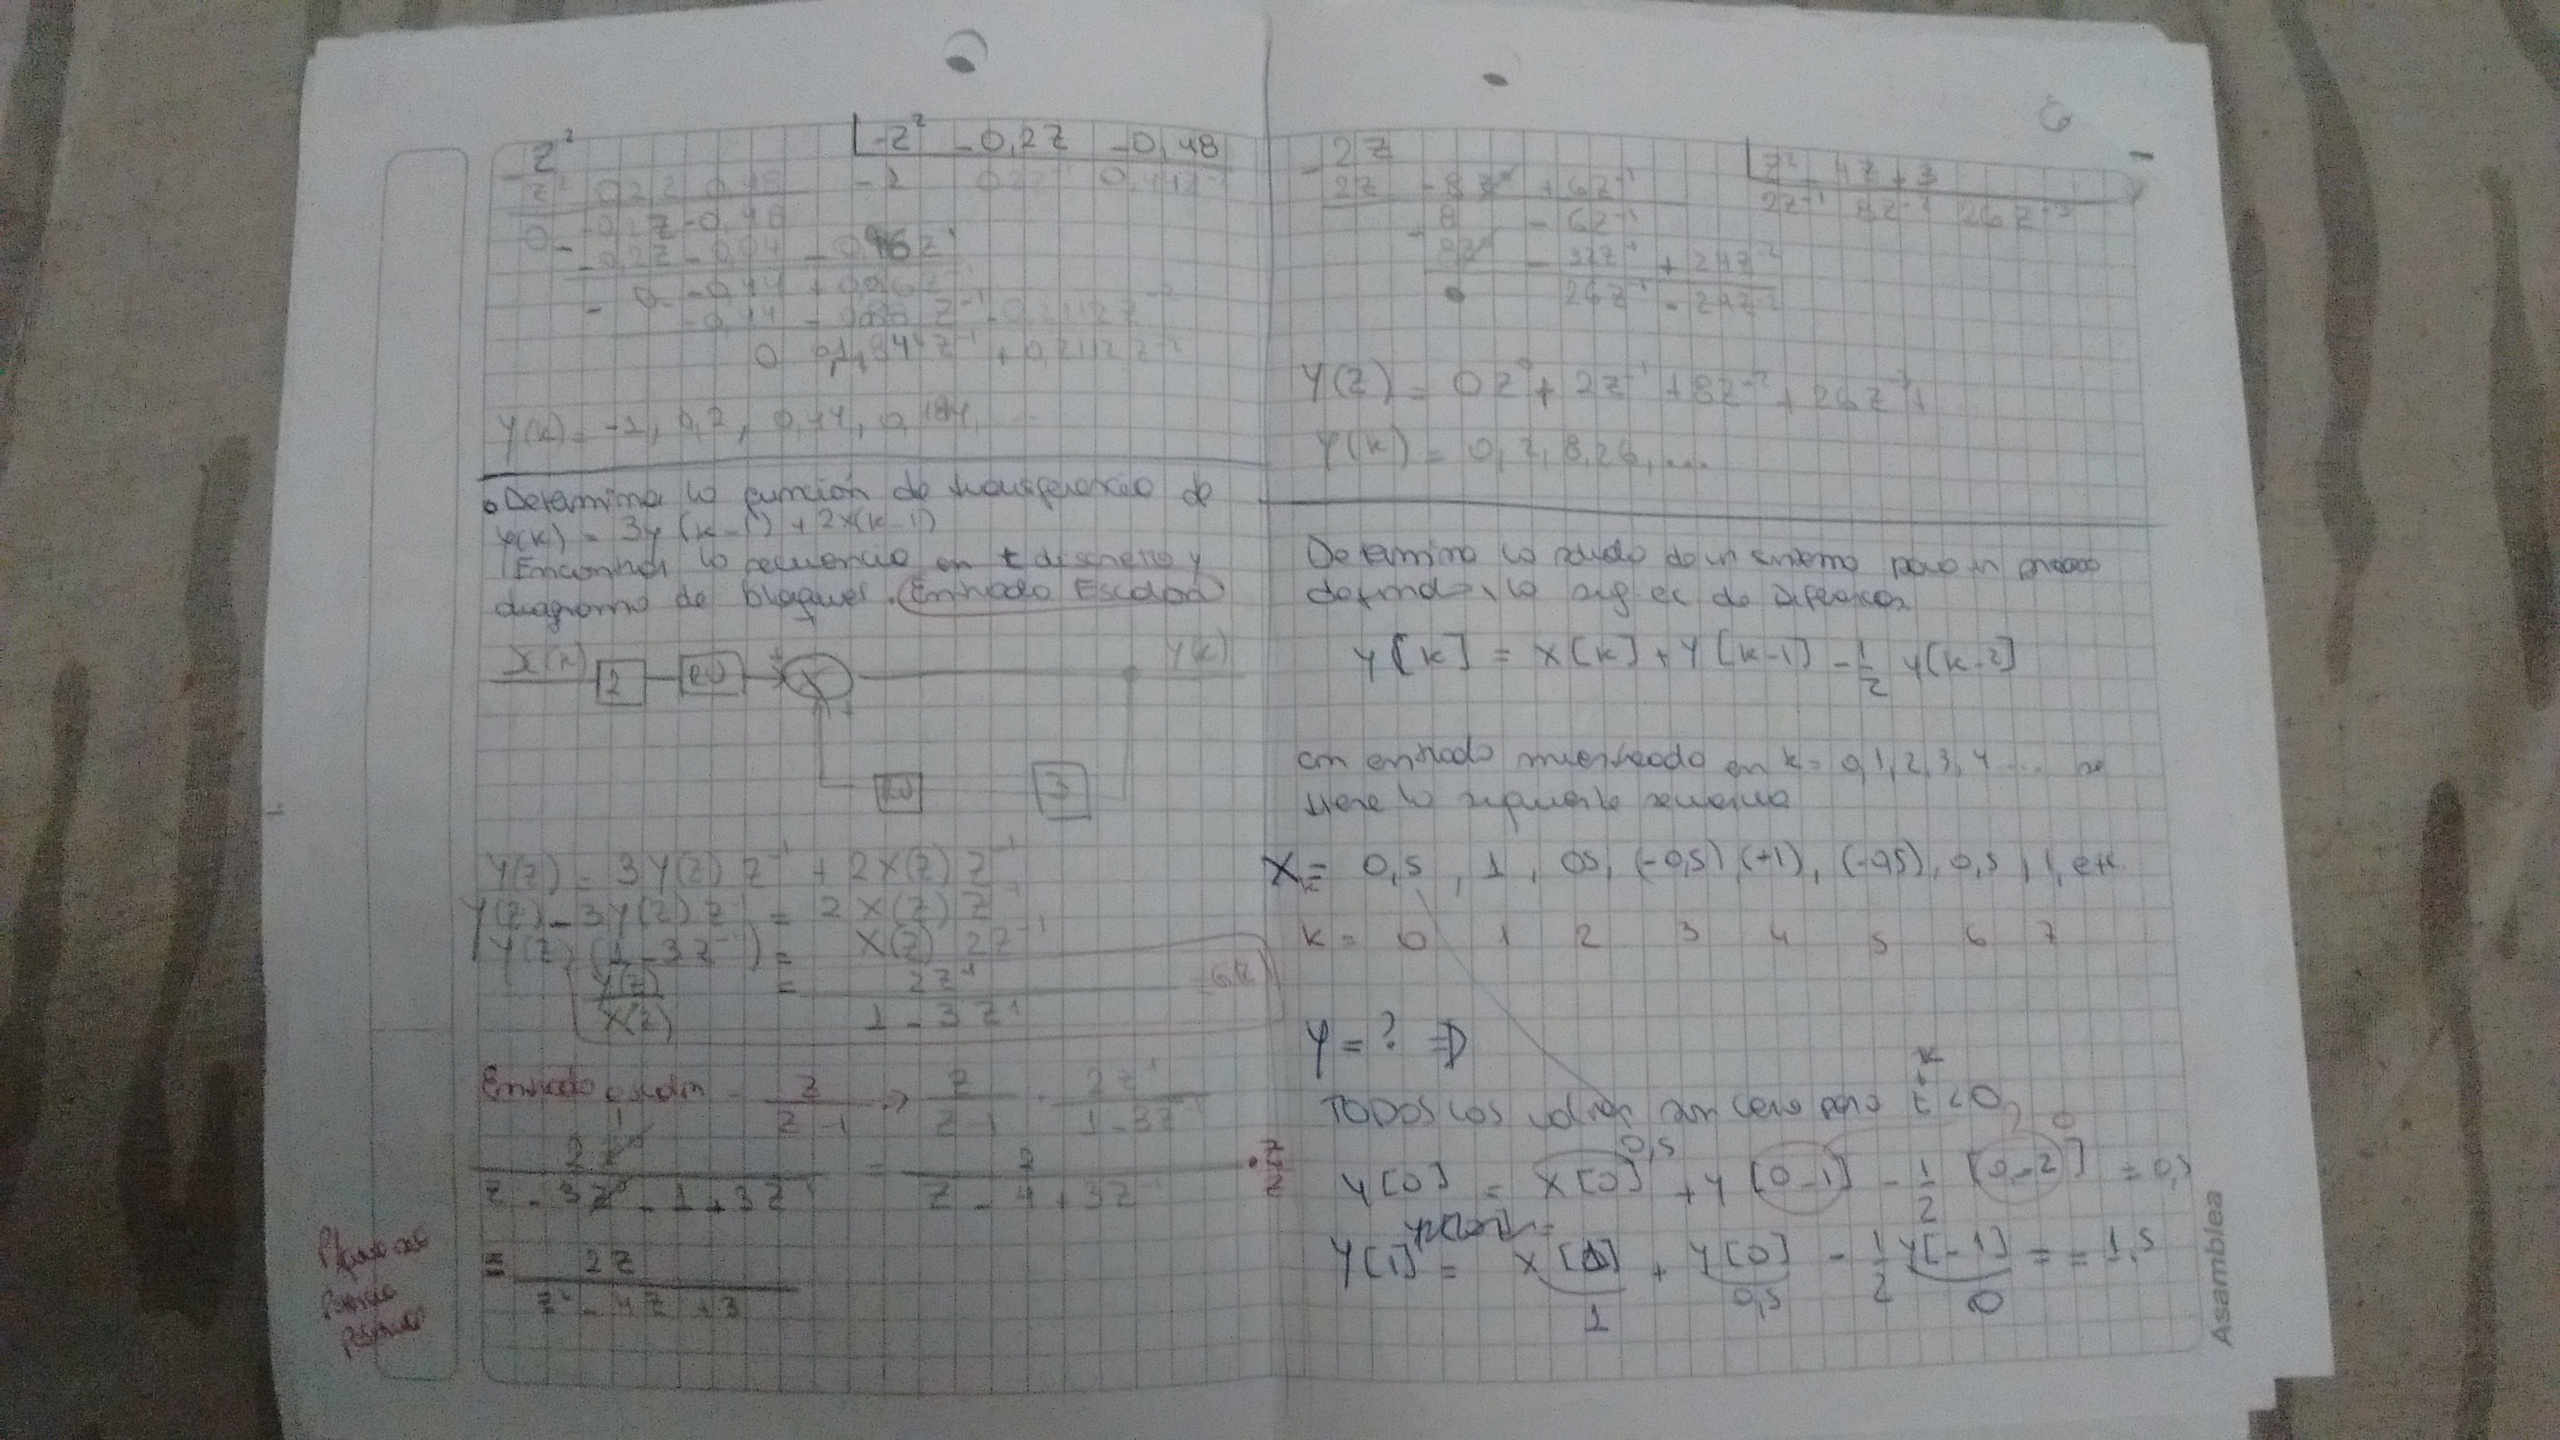 z²
-z² - 0,2z - 0,48
z² 0,2z 0,48
-1 0,2z⁻¹ 0,44z⁻²
-0,2z - 0,48
0 -0,2z - 0,04 -
y(k) = -1, 0,2, 0,44, 0,184, ...
• Determinar la función de transferencia de
y(k) = 3y(k-1) + 2x(k-1)
Encontrar la secuencia en t discreto y
diagrama de bloques. (Entrada Escalon)
X(k) 2 Y(k)
3
Y(z) = 3Y(z) z⁻¹ + 2X(z) z⁻¹
Y(z) - 3Y(z) z⁻¹ = 2X(z) z⁻¹
Y(z) (1 - 3z⁻¹) = X(z) 2z⁻¹
Y(z)/X(z) = 2z⁻¹/(1 - 3z⁻¹)
Entrada escalón z/(z-1) → z/(z-1) · 2z⁻¹/(1-3z⁻¹)
2z⁰/(z - 3z⁰ - 1 + 3z⁻¹) = 2/(z - 4 + 3z⁻¹) · z/z
= 2z/(z² - 4z + 3)
6
2z
z² - 4z + 3
2z - 8z⁰ + 6z⁻¹
2z⁻¹ 8z⁻² 26z⁻³
8 - 6z⁻¹
8z⁰ - 32z⁻¹ + 24z⁻²
26z⁻¹ - 24z⁻²
Y(z) = 0z⁰ + 2z⁻¹ + 8z⁻² + 26z⁻³ +
Y(k) = 0, 2, 8, 26, ...
Determina la salida de un sistema para un proceso
definido x la sig ec de Diferencias
Y[k] = X[k] + Y[k-1] - 1/2 Y[k-2]
con entrada muestreada en k = 0, 1, 2, 3, 4 ... se
tiene la siguiente secuencia
X = 0,5, 1, 0,5, (-0,5), (+1), (-0,5), 0,5, 1, etc
k = 0 1 2 3 4 5 6 7
Y = ? ⇒
TODOS LOS valores son cero para t < 0
k
0,5 0
Y[0] = X[0] + Y[0-1] - 1/2 [0-2] = 0,5
Y[1] = X[1] + Y[0] - 1/2 Y[-1] = = 1,5
1 0,5 0
Asamblea